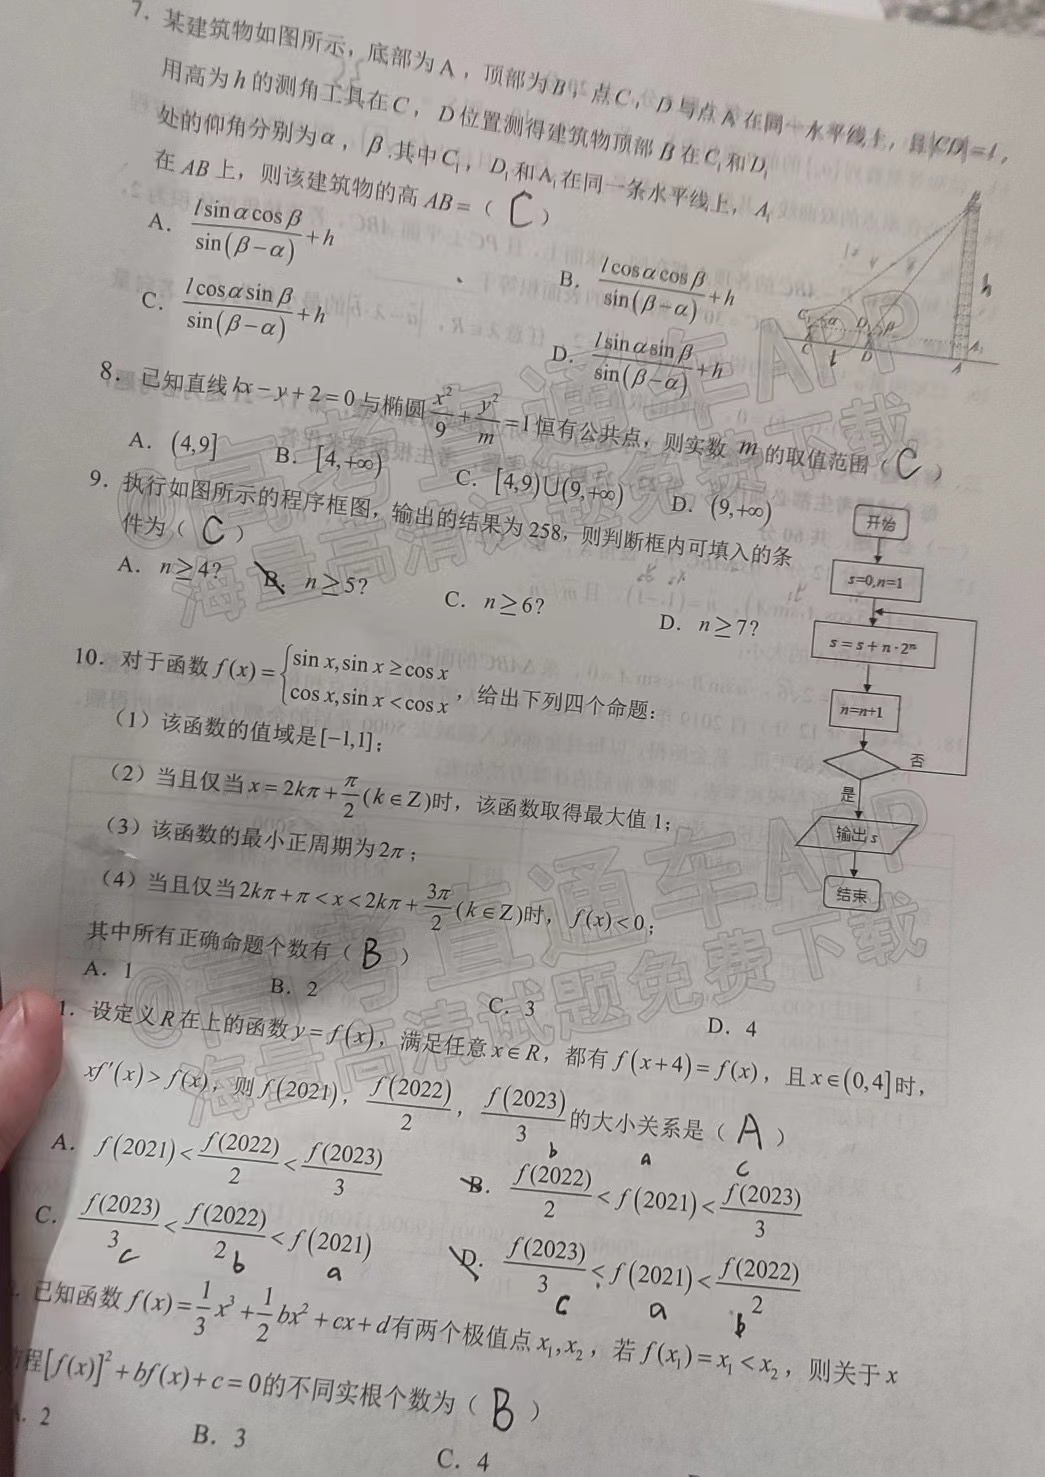 7. 某建筑物如图所示，底部为A，顶部为B，点C，D与点A在同一水平线上，且|CD|=l，
用高为h的测角工具在C，D位置测得建筑物顶部B在C₁和D₁
处的仰角分别为α，β.其中C₁，D₁和A₁在同一条水平线上，A₁
在AB上，则该建筑物的高AB=（ C ）
A. l sin α cos β / sin(β-α) + h
B. l cos α cos β / sin(β-α) + h
C. l cos α sin β / sin(β-α) + h
D. l sin α sin β / sin(β-α) + h
B
h
C₁ α D₁ β A₁
C l D A
8. 已知直线kx-y+2=0与椭圆x²/9+y²/m=1恒有公共点，则实数m的取值范围（ C ）
A. (4,9]
B. [4,+∞)
C. [4,9)∪(9,+∞)
D. (9,+∞)
9. 执行如图所示的程序框图，输出的结果为258，则判断框内可填入的条
件为（ C ）
A. n≥4?
B. n≥5?
C. n≥6?
D. n≥7?
开始
s=0,n=1
s=s+n·2ⁿ
n=n+1
否
是
输出s
结束
10. 对于函数f(x)={sin x,sin x≥cos x
cos x,sin x<cos x，给出下列四个命题：
（1）该函数的值域是[-1,1]；
（2）当且仅当x=2kπ+π/2(k∈Z)时，该函数取得最大值1；
（3）该函数的最小正周期为2π；
（4）当且仅当2kπ+π<x<2kπ+3π/2(k∈Z)时，f(x)<0；
其中所有正确命题个数有（ B ）
A. 1
B. 2
C. 3
D. 4
1. 设定义R在上的函数y=f(x)，满足任意x∈R，都有f(x+4)=f(x)，且x∈(0,4]时，
xf′(x)>f(x)，则f(2021)，f(2022)/2，f(2023)/3的大小关系是（ A ）
A. f(2021)<f(2022)/2<f(2023)/3
b a c
B. f(2022)/2<f(2021)<f(2023)/3
C. f(2023)/3<f(2022)/2<f(2021)
c b a
D. f(2023)/3<f(2021)<f(2022)/2
c a b
. 已知函数f(x)=1/3x³+1/2bx²+cx+d有两个极值点x₁,x₂，若f(x₁)=x₁<x₂，则关于x
程[f(x)]²+bf(x)+c=0的不同实根个数为（ B ）
. 2
B. 3
C. 4
@高考直通车APP
海量高清试题免费下载
@高考直通车APP
海量高清试题免费下载